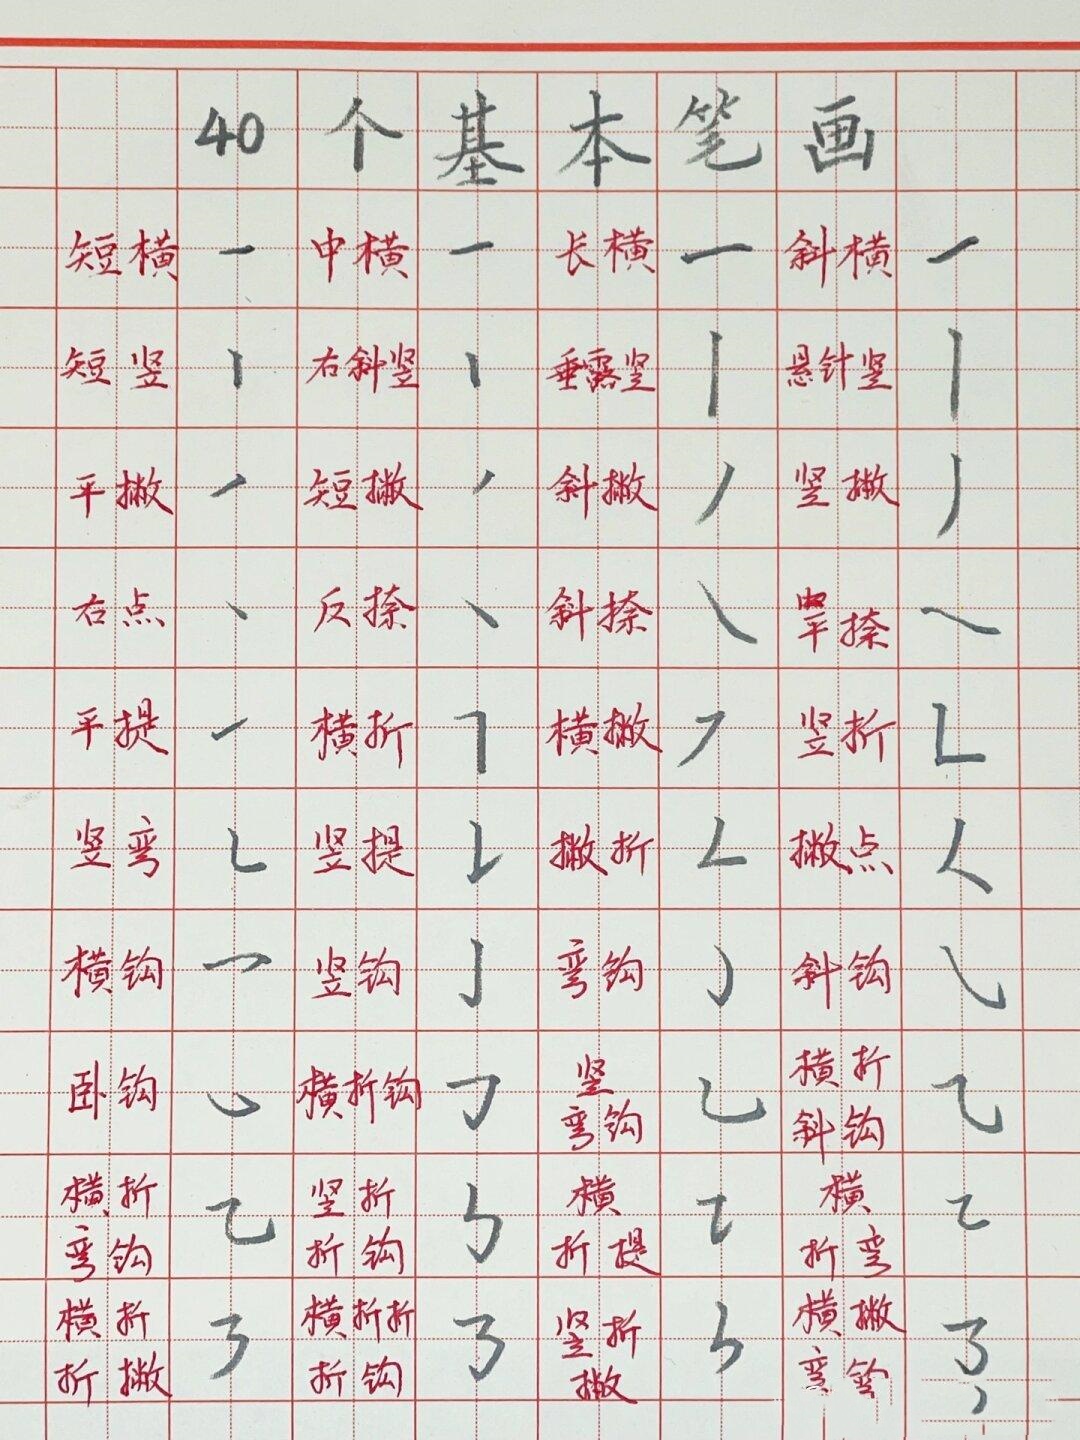 40个基本笔画
短横 一 中横 一 长横 一 斜横 ㇀
短竖 丨 右斜竖 丨 垂露竖 丨 悬针竖 丨
平撇 ㇒ 短撇 ㇒ 斜撇 丿 竖撇 丿
右点 丶 反捺 丶 斜捺 ㇏ 平捺 ㇏
平提 ㇀ 横折 ㇕ 横撇 ㇇ 竖折 ㇗
竖弯 ㇄ 竖提 ㇙ 撇折 ㇜ 撇点 ㇛
横钩 ㇖ 竖钩 亅 弯钩 ㇁ 斜钩 ㇂
卧钩 ㇃ 横折钩 ㇆ 竖弯钩 ㇟ 横折斜钩 ⺄
横折弯钩 ㇈ 竖折折钩 ㇉ 横折提 ㇊ 横折弯 ㇍
横折折撇 ㇋ 横折折折钩 ㇡ 竖折撇 ㇞ 横撇弯钩 ㇌